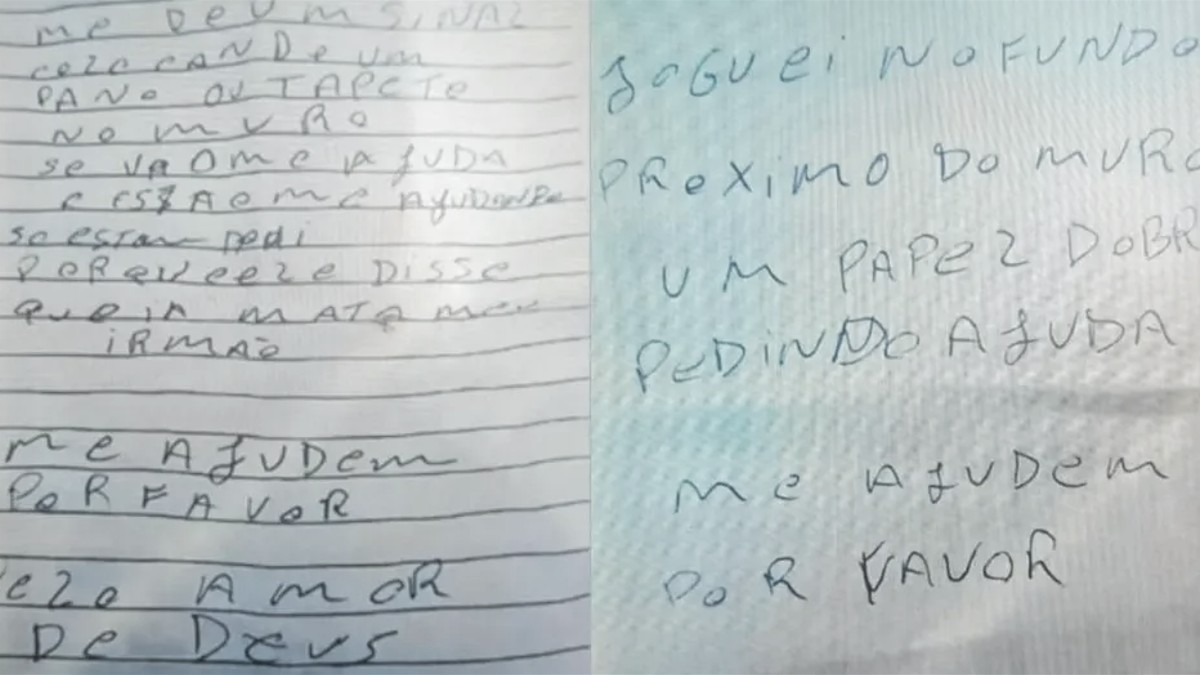 me Deu m SiNAL
coLocANDe um
PANo ou TAPeTe
No muRo
se VAOme AJUDA
e esTAo me AJUDANDo
se estam pedi
PoRque eLe Disse
que iA mATA meu
iRmÃo
me AJUDem
PoR FAVoR
eLo AmoR
De Deus
JoGuei No FUNDo
PRoximo Do muRo
um PAPeL DoBR
PeDiNDo AJUDA
me AJUDem
PoR FAVOR